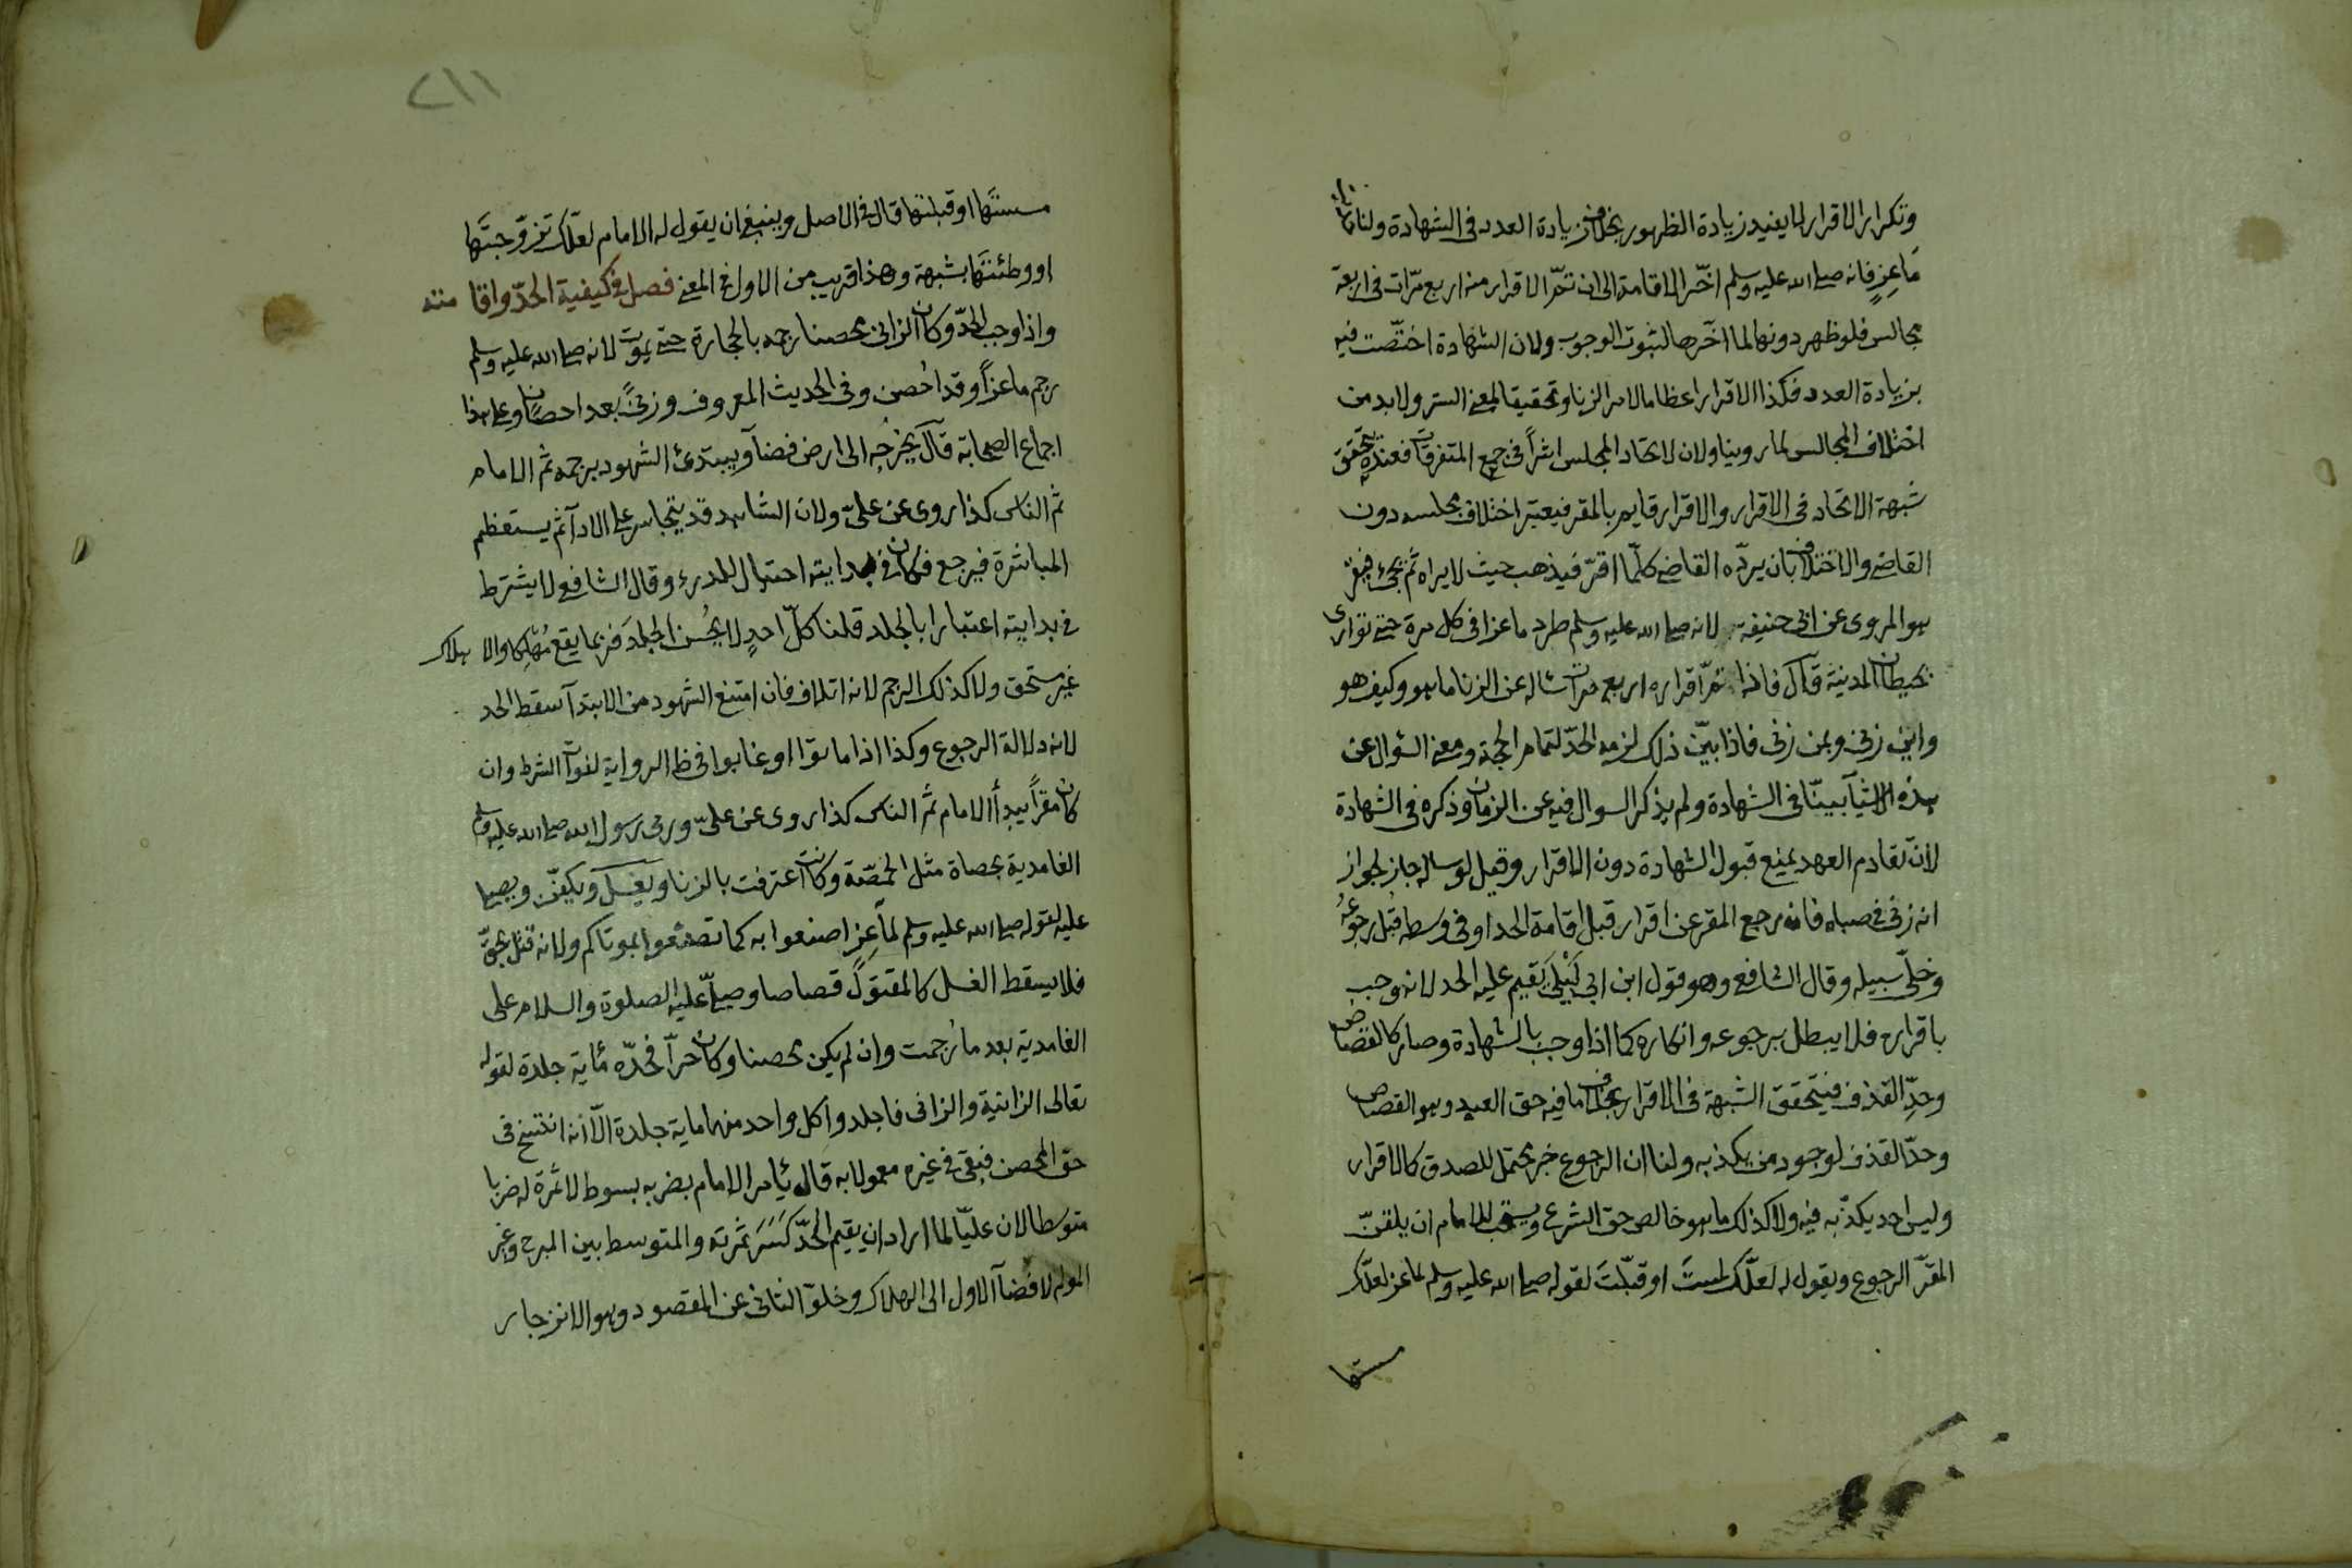 وتكرار الاقرار لا يفيد زيادة الظهور بخلاف زيادة العدد فى الشهادة ولنا
ماعز فانه صلى الله عليه وسلم اخّر الاقامة الى ان تمّ الاقرار منه اربع مرّات فى اربعة
مجالس فلو ظهر دونها لما اخّرها لثبوت الوجوب ولان الشهادة اختصّت فيه
بزيادة العدد فكذا الاقرار اعظاما لامر الزنا وتحقيقا لمعنى الستر ولابد من
اختلاف المجالس لما روينا ولان لاتحاد المجلس اثراً فى جمع المتفرقات فعنده يتحقق
شبهة الاتحاد فى الاقرار والاقرار قايم بالمقر فيعتبر اختلاف مجلسه دون
القاضى والاختلاف بان يردّه القاضى كلّما اقرّ فيذهب حيث لا يراه ثم يجئ فيقرّ
هو المروى عن ابى حنيفة لانه صلى الله عليه وسلم طرد ماعزا فى كل مرة حتى توارى
بحيطان المدينة قال فاذا تمّ اقراره اربع مرات ساله عن الزنا ما هو وكيف هو
واين زنى وبمن زنى فاذا بيّن ذلك لزمه الحدّ لتمام الحجة ومعنى السؤال عن
هذه الاشيآ بينّا فى الشهادة ولم يذكر السوال فيه عن الزمان وذكره فى الشهادة
لانّ تقادم العهد يمنع قبول الشهادة دون الاقرار وقيل لو ساله جاز لجواز
انه زنى فى صباه فان رجع المقر عن اقراره قبل اقامة الحد او فى وسطه قُبل رجوعُه
وخلّى سبيله وقال الشافعى وهو قول ابن ابى لَيْلَى يقيم عليه الحد لانه وجب
باقراره فلا يبطل برجوعه وانكاره كما اذا وجب بالشهادة وصار كالقصاص
وحدّ القذف فيتحقق الشبهة فى الاقرار بخلاف ما فيه حق العبد وهو القصاص
وحدّ القذف لوجود من يكذبه ولنا ان الرجوع خبر محتمل للصدق كالاقرار
وليس احد يكذّبه فيه ولا كذلك ما هو خالص حق الشرع ويستحب للامام ان يلقنّ
المقرّ الرجوع ويقول له لعلّك لمستَ او قبّلتَ لقوله صلى الله عليه وسلم لماعز لعلّك
مسستها
٢١١
مسستَها او قبلتها قال فى الاصل وينبغى ان يقول له الامام لعلّك تزوّجتَها
او وطئتَها بشبهة وهذا قريب من الاول فى المعنى فصل فى كيفية الحدّ واقامته
واذا وجب الحدّ وكان الزانى محصنا رجمه بالحجارة حتى يموت لانه صلى الله عليه وسلم
رجم ماعزاً وقد اُحصن وفى الحديث المعروف وزنىً بعد احصان وعلى هذا
اجماع الصحابة قال يخرجه الى ارض فضآ ويبتدئ الشهود برجمه ثم الامام
ثم الناس كذا روى عن علىّ ولان الشاهد قد يتجاسر على الادآ ثم يستعظم
المباشرة فيرجع فكان فى بدايته احتيال للدرء وقال الشافعى لا يشترط
فى بدايته اعتبارا بالجلد قلنا كلّ احدٍ لا يُحسن الجلدَ فربما يقع مُهلِكا والاهلاك
غير مستحق ولا كذلك الرجم لانه اتلاف فان امتنع الشهود من الابتدآ سقط الحد
لانه دلالة الرجوع وكذا اذا ماتوا او غابوا فى ظاهر الرواية لفوآت الشرط وان
كان مقرّاً يبدأ الامام ثم الناس كذا روى عن علىّ ورمى رسول الله صلى الله عليه وسلم
الغامدية بحصاة مثل الحمّصة وكانت اعترفت بالزنا ويغسل ويكفّن ويصلى
عليه لقوله صلى الله عليه وسلم لماعز اصنعوا به كما تصنعوا بموتاكم ولانه قتل بحقّ
فلا يسقط الغسل كالمقتول قصاصا وصلّى عليه الصلوة والسلام على
الغامدية بعد ما رُجمت وان لم يكن محصنا وكان حرّاً فحدّه مأية جلدة لقوله
تعالى الزانية والزانى فاجلدوا كل واحد منهما ماية جلدة الّا انه انتسخ فى
حق المحصن فبقى فى غيره معمولا به قال يأمر الامام بضربه بسوط لا ثمرة له ضربا
متوسطا لان عليّا لما اراد ان يقيم الحدّ كَسَرَ ثمرته والمتوسط بين المبرح وغير
المولم لافضآ الاول الى الهلاك وخلوّ الثانى عن المقصود وهو الانزجار